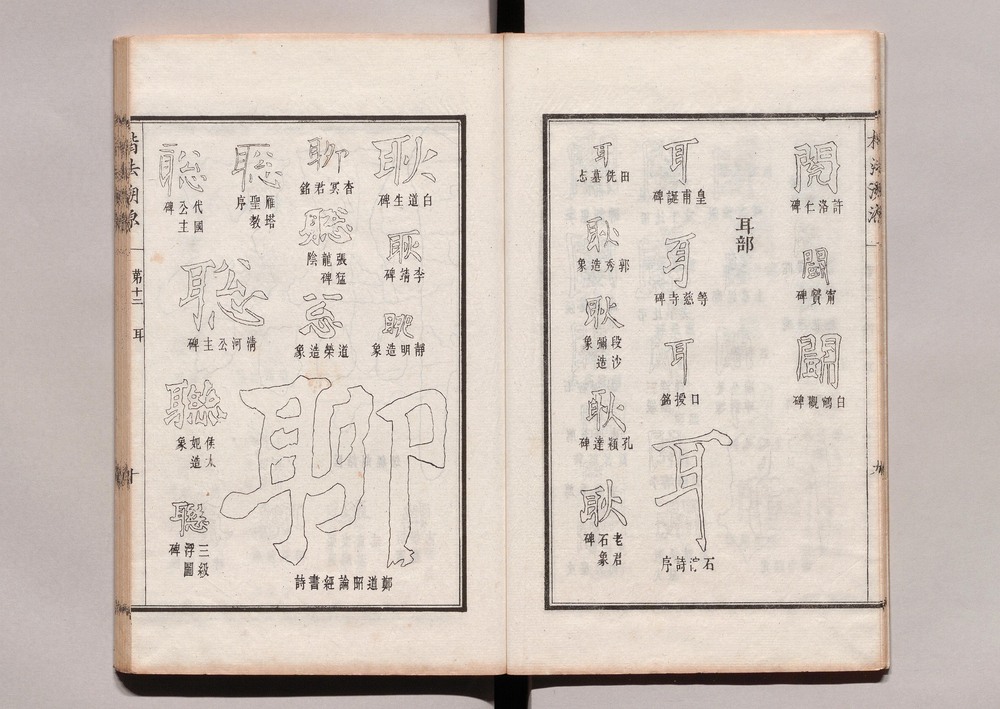 許洛仁碑
闘
甯贇碑
闘
白鶴觀碑
耳部
耳
皇甫誕碑
耳
等慈寺碑
耳
口授銘
耳
石淙詩序
耳
田侁墓志
耿
郭秀造象
耿
段沙彌造象
耿
孔穎達碑
耿
老君石象碑
楷法溯源
第十二
耳
十
耿
白道生碑
耿
李靖碑
靜明造象
聊
杳冥君銘
聰
張猛龍碑陰
道榮造象
聊
鄭道昭論經書詩
聰
雁塔聖教序
聰
代國公主碑
聰
清河公主碑
聯
侯太妃造象
聰
三級浮圖碑